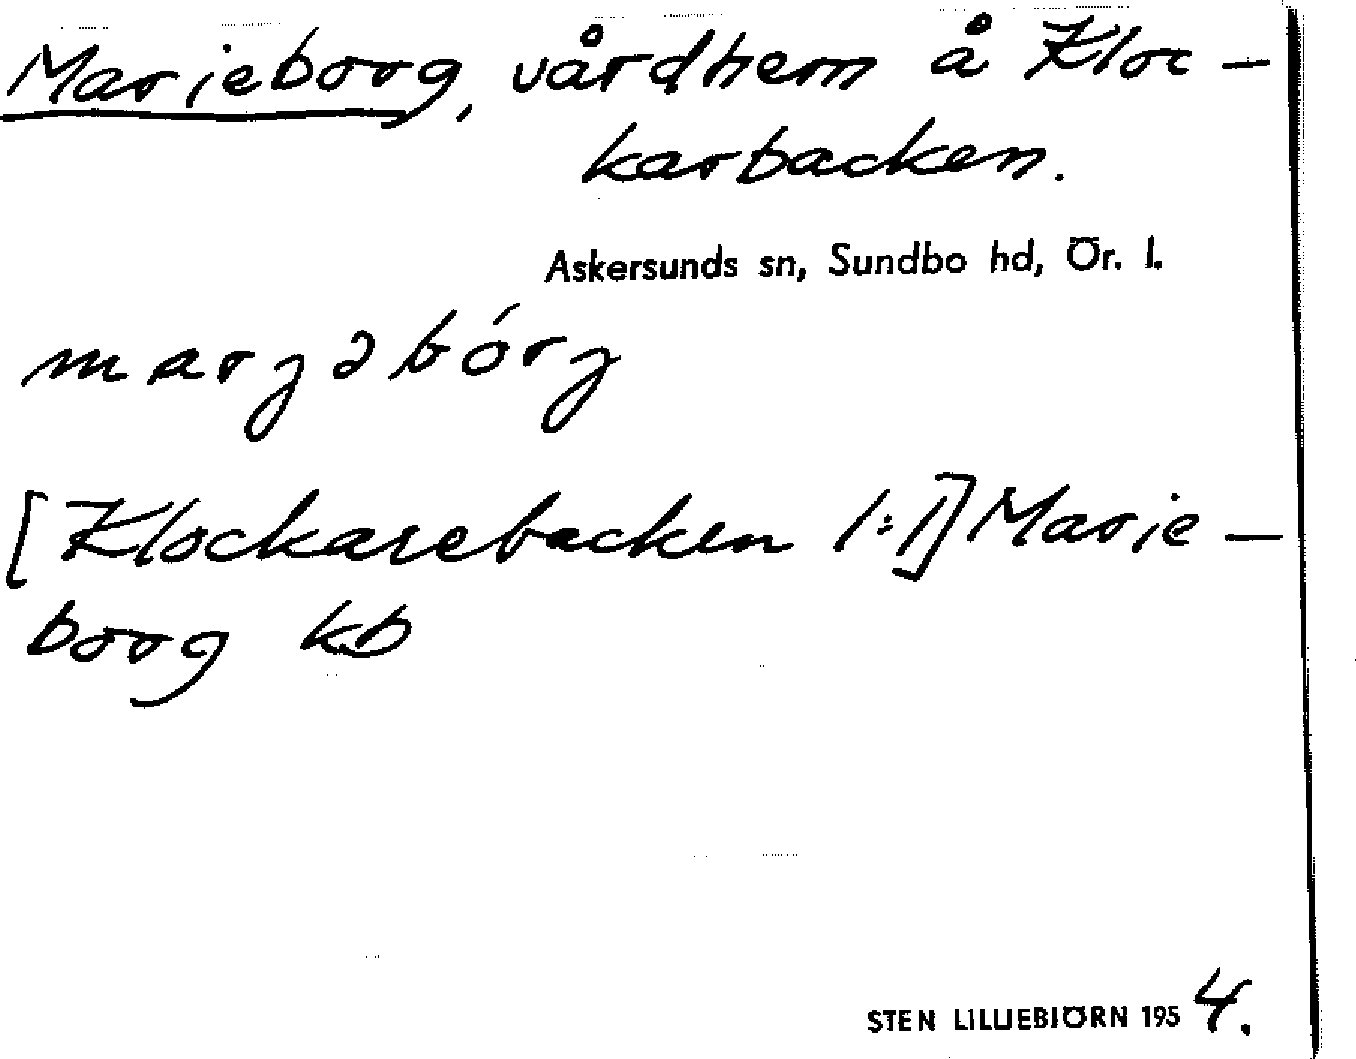 Marieborg, vårdhem å Kloc-
karbacken.
Askersunds sn, Sundbo hd, Ör. l.
marjəbórj
[Klockarebacken 1:1] Marie-
borg kb
STEN LILLIEBIÖRN 1954.